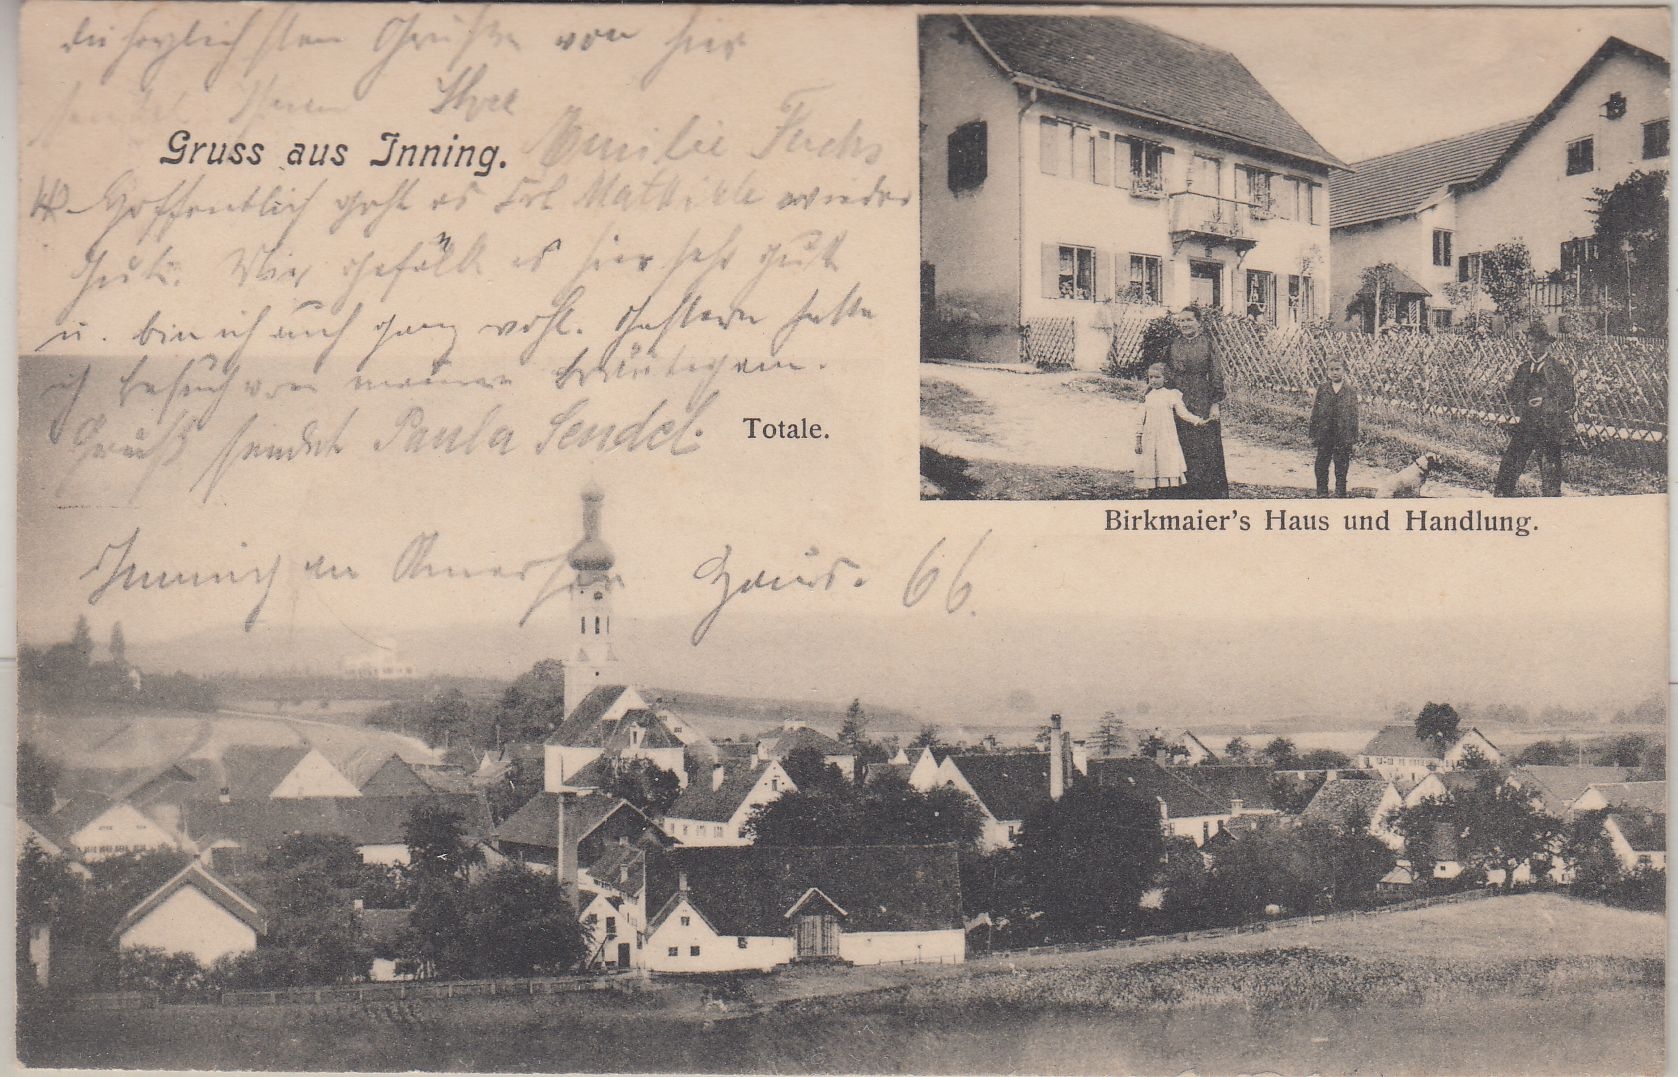 die herzlichsten Grüße von hier
sendet Ihnen Ihre
Emilie Fuchs
Gruss aus Inning.
Hoffentlich geht es Frl Mathilde wieder
gut. Mir gefällt es hier sehr gut
u. bin ich auch ganz wohl. Gestern hatte
ich Besuch von meinem Bräutigam.
Gruß sendet Paula Sendel.
Totale.
Birkmaier's Haus und Handlung.
Inning am Amersee Haus. 66.